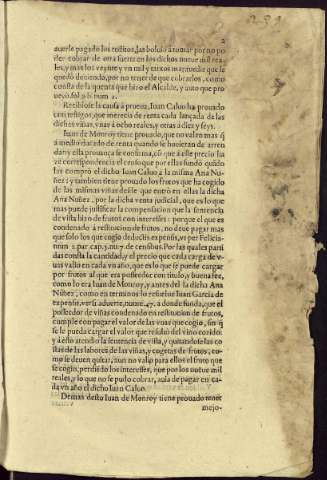 2
auerle pagado los reditos, las boluio à tomar por no po
der cobrar de otra suerte en los dichos nueue mil rea
les, y mas los veynte y vn mil y tantos marauedis que le
quedò deuiendo, por no tener de que cobrarlos, como
consta de la quenta que hizo el Alcalde, y auto que pro
ueyò fol
Recibiose la causa à prueua, Iuan Caluo ha prouado
con testigos, que merecia de renta cada lançada de las
dichas viñas, vnas à ocho reales, y otras à diez y seys.
Iuan de Monroy tiene prouado, que no valen mas q̃
à medio ducado de renta quando se huuieran de arren
dar: y ella prouança se confirma, cõ que à este precio ha
ze correspondencia el censo que por ellas fundò quãdo
las comprò el dicho Iuan Caluo à la misma Ana Nu
ñez: y tambien tiene prouado los frutos que ha cogido
de las mismas viñas desde que entrò en ellas la dicha
Ana Nuñez, por la dicha venta judicial, que es lo que
mas puede justificar la compensacion que la sentencia
de vista hizo de frutos con interesses: porque el que es
condenado à restituciõ de frutos, no deue pagar mas
que solo los que cogio deductis expensis, vt per Felicia
num 2. par cap. de censibus. Por las quales parti
das consta la cantidad, y el precio que cada carga de v-
uas valio en cada vn año, que es lo que se puede cargar
por frutos al que era posseedor con titulo, y buena fee,
como lo era Iuan de Monroy, y antes del la dicha Ana
Nuñez, como en terminos lo resuelue Iuan Garcia de
expens. vers. aduerte, nume. 47. à donde funda, que el
posseedor de viñas condenado en restitucion de frutos,
cumple con pagar el valor de las vuas que cogio, sin q̃
se le pueda cargar el valor que resulto del vino cozido:
y à esto atendio la sentencia de vista, y quitandose las co
stas de las labores de las viñas, y cogetas de frutos, co-
mo se deuen quitar, aun no valio para ellos el fruto que
se cogio, perdido los interesses, que por los nueue mil
reales, y lo que no se pudo cobrar, auia de pagar en ca-
da vn año el dicho Iuan Caluo.
Demas desto Iuan de Monroy tiene prouado tener
mejo-